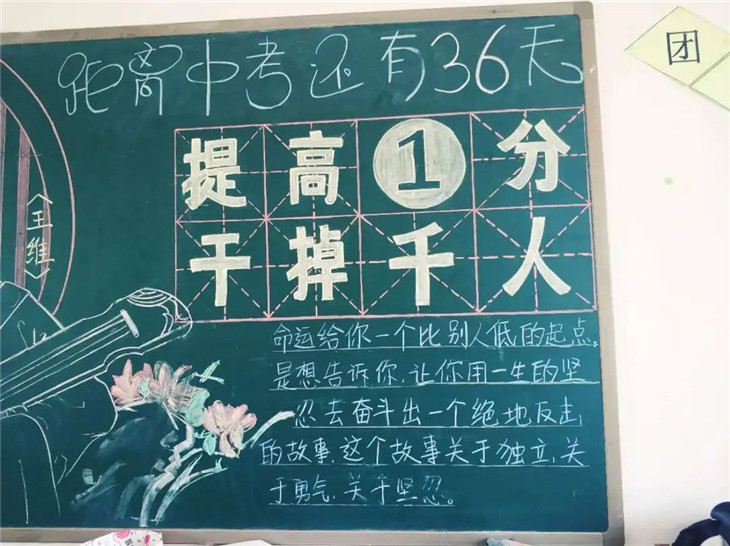 距离中考还有36天
提高1分
干掉千人
命运给你一个比别人低的起点。
是想告诉你,让你用一生的坚
忍去奋斗出一个绝地反击
的故事,这个故事关于独立,关
于勇气,关于坚忍。
〈王维〉
团